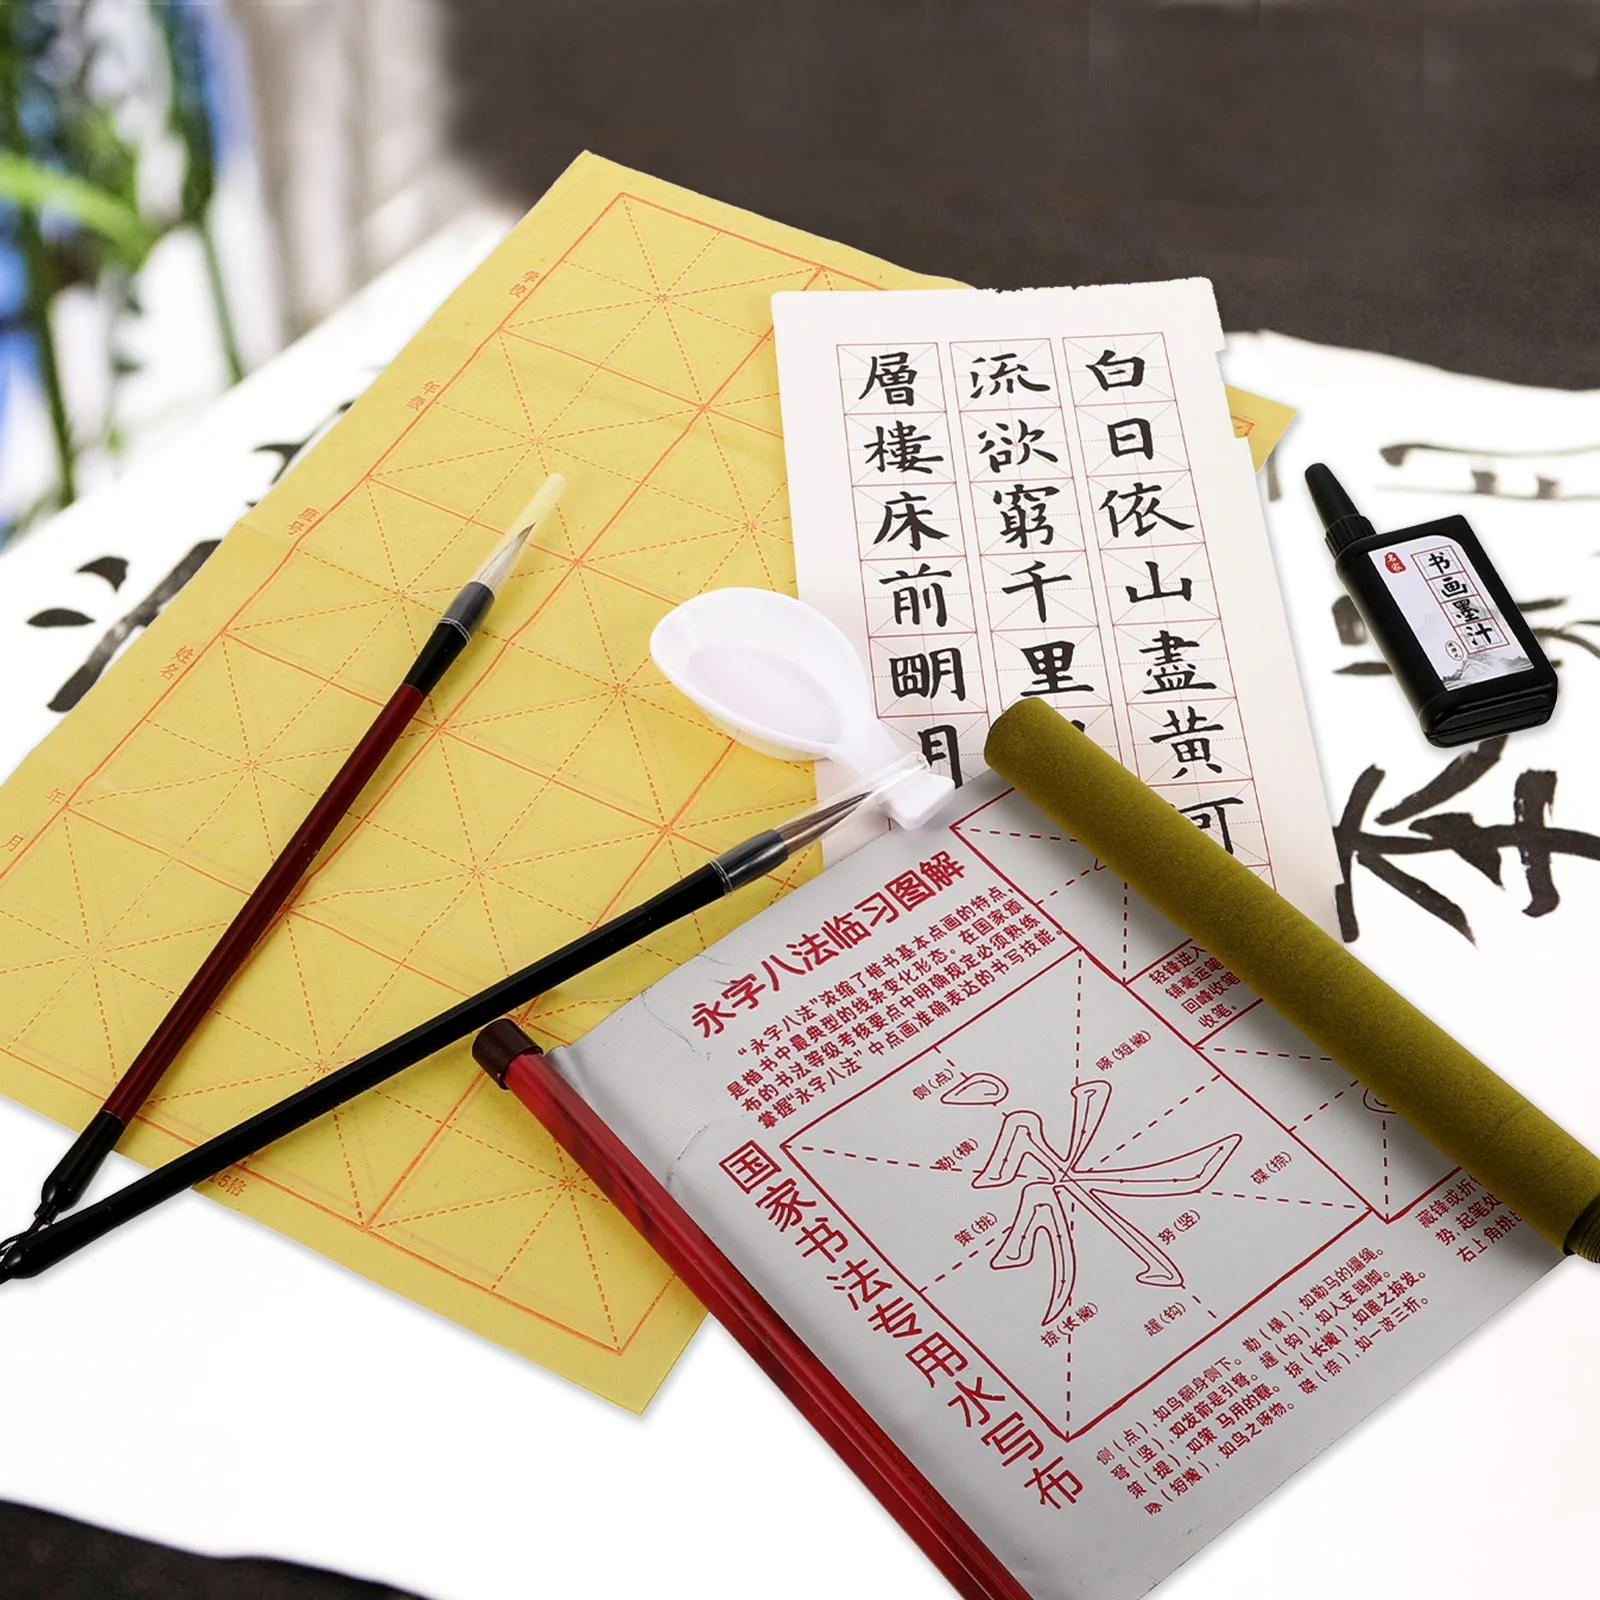 学校
年级
座号
姓名
年
月
15格
白日依山盡黄河
流欲窮千里
層樓床前明月
名家
书画墨汁
永字八法临习图解
“永字八法”浓缩了楷书基本点画的特点,
是楷书中最典型的线条变化形态。在国家颁
布的书法等级考核要点中明确规定必须熟练
掌握“永字八法”中点画准确表达的书写技能。
国家书法专用水写布
侧(点)
啄(短撇)
勒(横)
磔(捺)
策(挑)
努(竖)
掠(长撇)
趯(钩)
永
轻锋逆入
铺毫运笔
回峰收笔
收笔。
藏锋或折
势,起笔处
右上角挑
侧(点),如鸟翻身侧下。勒(横),如勒马的缰绳。
弩(竖),如发箭是引弩。趯(钩),如人支踢脚。
策(提),如策马用的鞭。掠(长撇),如篦之掠发。
啄(短撇),如鸟之啄物。磔(捺),如一波三折。